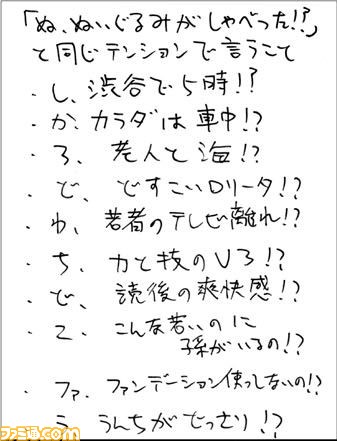 「ぬ、ぬいぐるみがしゃべった!?」
と同じテンションで言うこと
・し、渋谷で5時!?
・か、カラダは車中!?
・ろ、老人と海!?
・で、ですこいロリータ!?
・わ、若者のテレビ離れ!?
・ち、力と技のV3!?
・ど、読後の爽快感!?
・こ、こんな若いのに
孫がいるの!?
・ファ、ファンデーション使っしないの!?
・う、うんちがどっさり!?
ファミ通.com